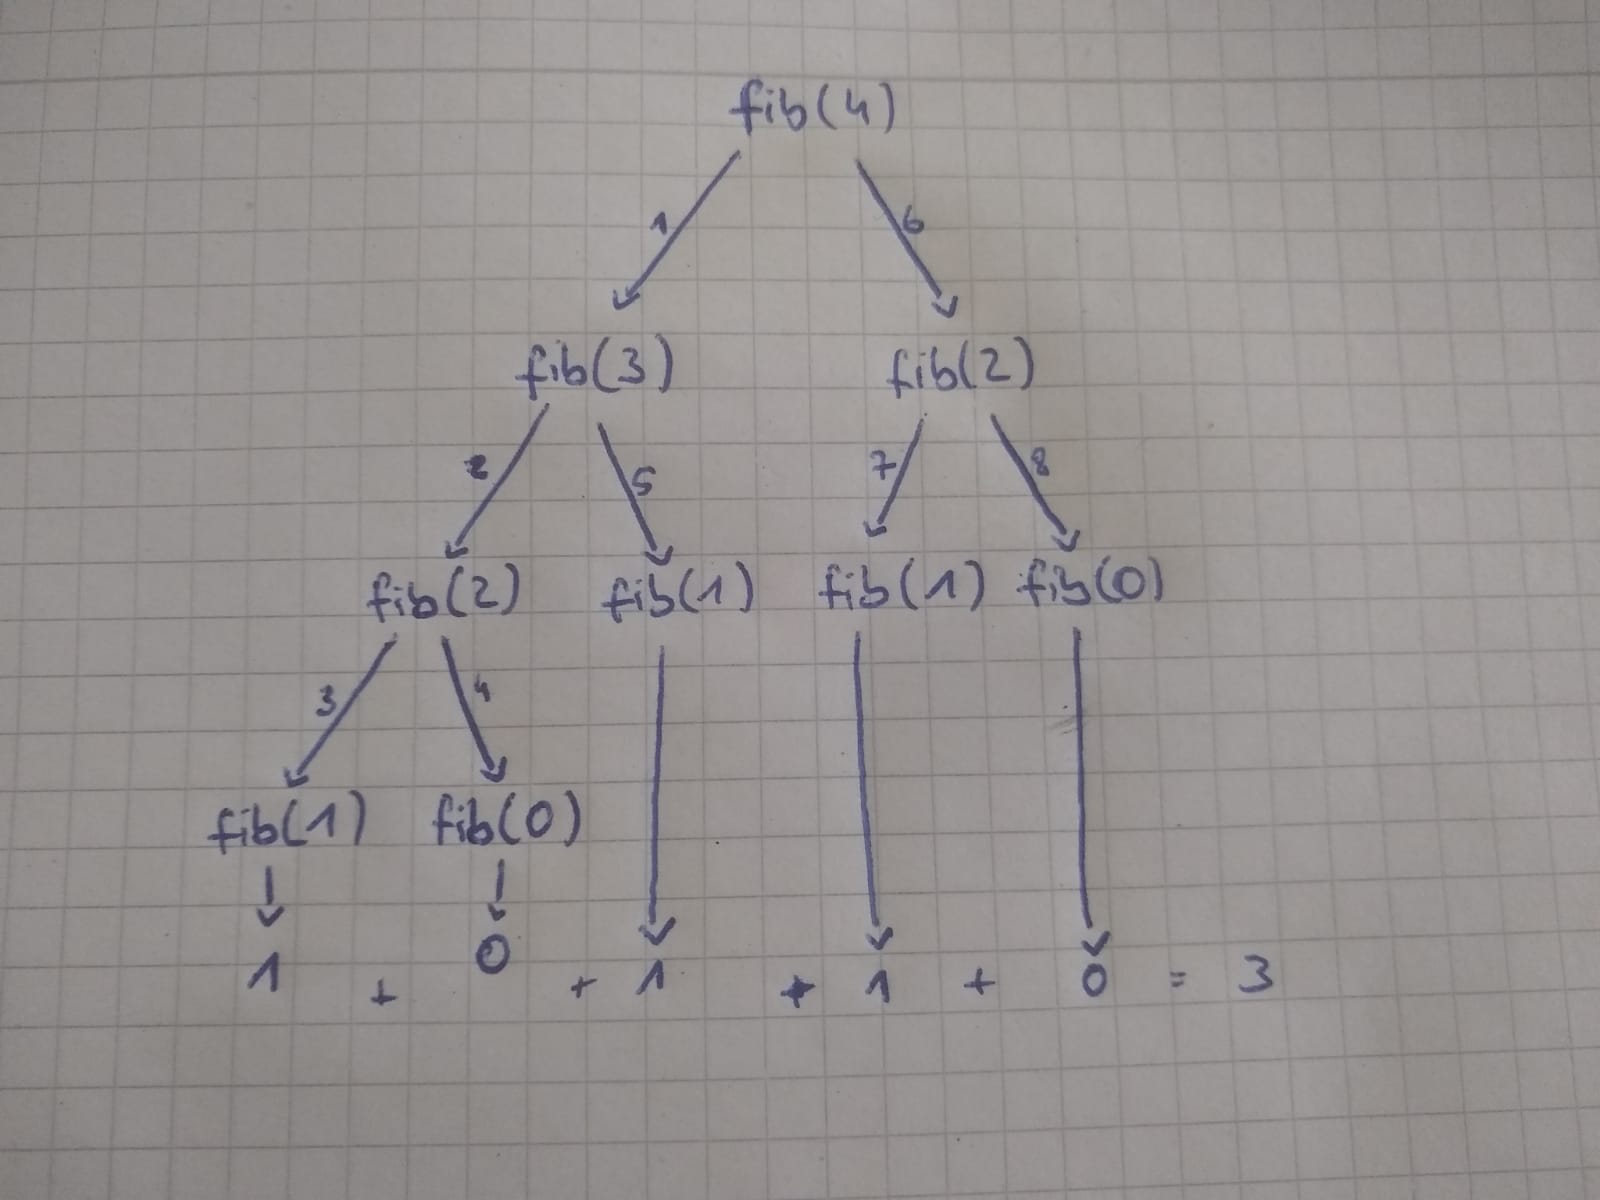 fib(4)
1 6
fib(3) fib(2)
2 5 7 8
fib(2) fib(1) fib(1) fib(0)
3 4
fib(1) fib(0)
1 + 0 + 1 + 1 + 0 = 3